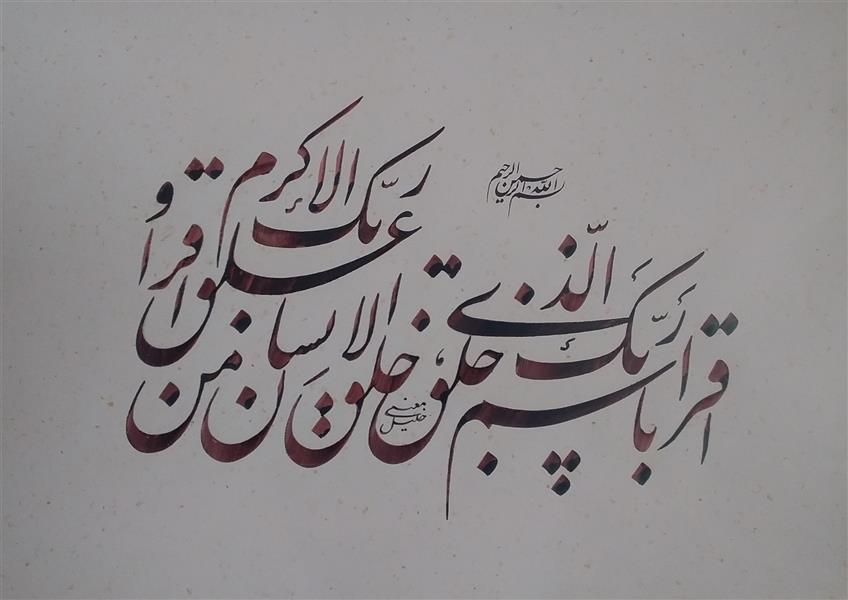 بسم الله الرحمن الرحیم
اقرأ باسم ربّک الّذی خلق، خلق الانسان من
علق اقرأ و ربّک الاکرم
معنی خلیل